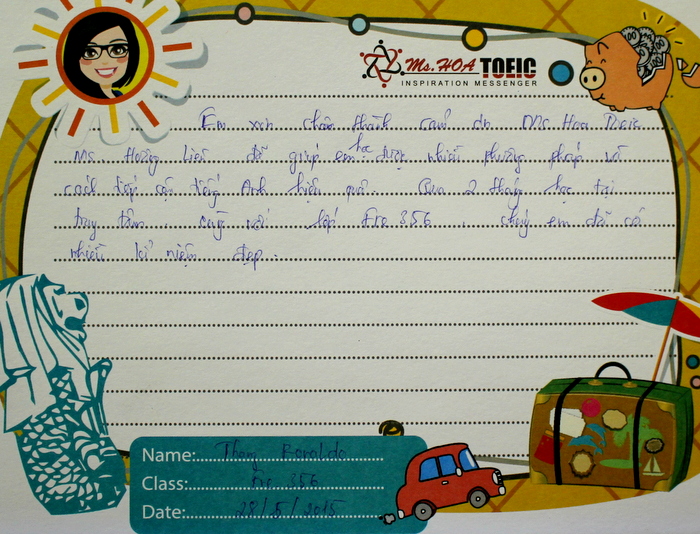 Ms. HOA TOEIC
INSPIRATION MESSENGER
Em xin chân thành cảm ơn Ms Hoa Toeic
Ms. Hoàng Liên đã giúp em học được nhiều phương pháp và
cách tiếp cận tiếng Anh hiệu quả. Qua 2 tháng học tại
trung tâm. cùng với lớp Pre 356, chúng em đã có
nhiều kỉ niệm đẹp.
Name: Thang Ronaldo
Class: Pre 356
Date: 28/5/2015